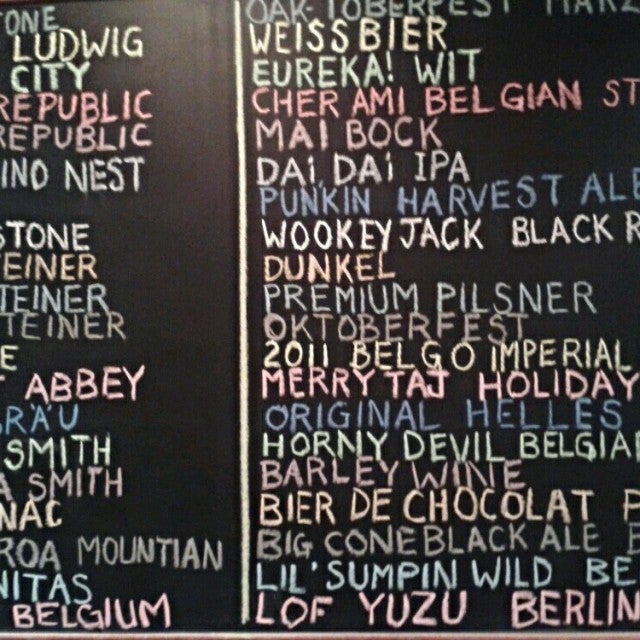 TONE OAK-TOBERFEST MARZ
LUDWIG WEISSBIER
CITY EUREKA! WIT
REPUBLIC CHER AMI BELGIAN ST
REPUBLIC MAI BOCK
INO NEST DAI, DAI IPA
PUNKIN HARVEST ALE
STONE WOOKEYJACK BLACK R
EINER DUNKEL
TEINER PREMIUM PILSNER
TEINER OKTOBERFEST
E 2011 BELGO IMPERIAL
T ABBEY MERRY TAJ HOLIDAY
BRÄU ORIGINAL HELLES
SMITH HORNY DEVIL BELGIAN
A SMITH BARLEY WINE
NAC BIER DE CHOCOLAT
ROA MOUNTIAN BIG CONE BLACK ALE
NITAS LIL' SUMPIN WILD BE
BELGIUM LOF YUZU BERLIN